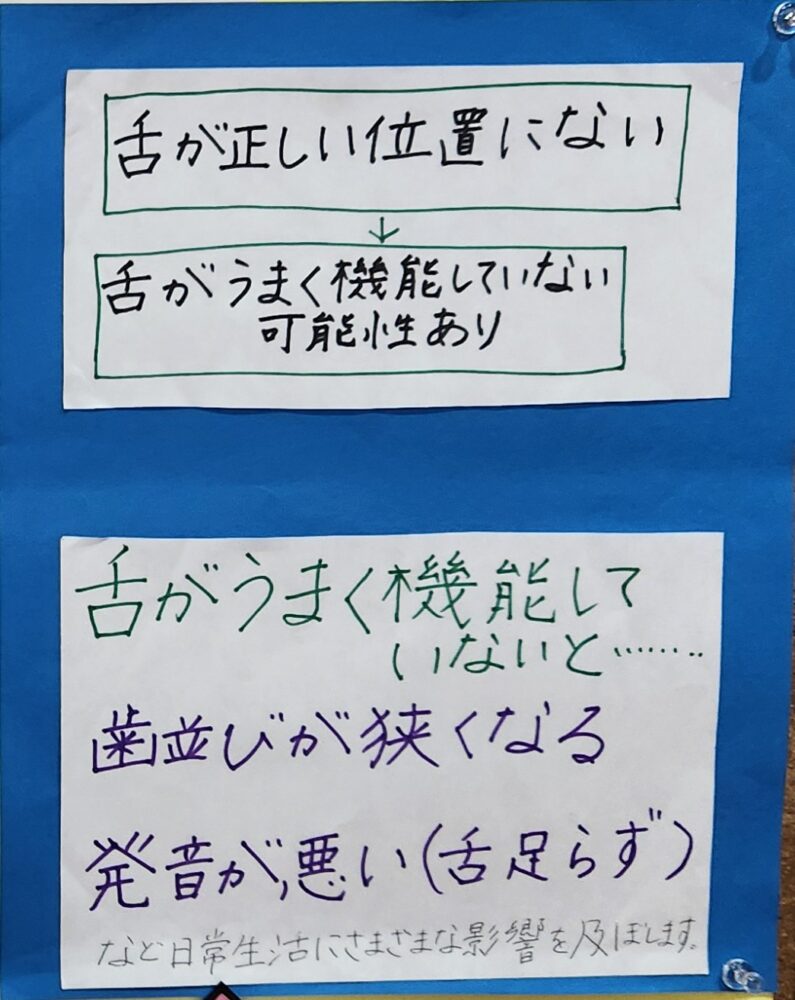 舌が正しい位置にない
↓
舌がうまく機能していない
可能性あり
舌がうまく機能して
いないと………
歯並びが狭くなる
発音が悪い(舌足らず)
など日常生活にさまざまな影響を及ぼします。